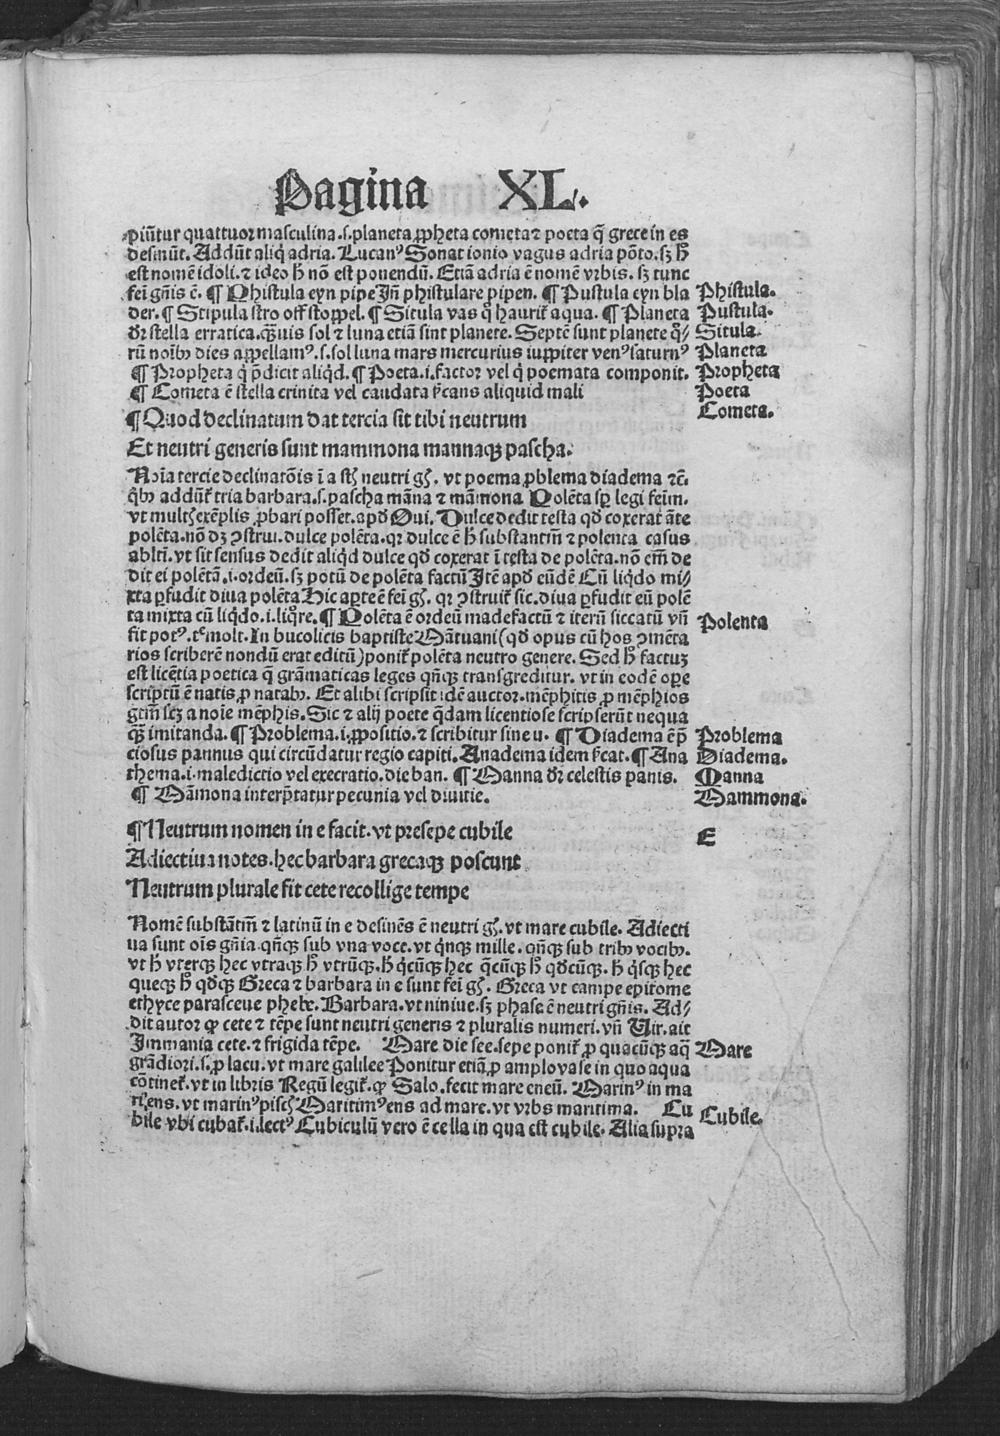 Pagina XL.
piũtur quattuor masculina.s.planeta ꝓpheta cometa ⁊ poeta q̃ grece in es
desinũt. Addũt aliq̇ adria. Lucanꝰ Sonat ionio vagus adria põto. sꝫ hͦ
est nomẽ idoli. ⁊ ideo hͦ nõ est ponendũ. Etiã adria ẽ nomẽ vrbis. sꝫ tunc
fei͂ gñis ẽ. ¶ Phistula eyn pipe Jñ phistulare pipen. ¶ Pustula eyn bla
Phistula.
der. ¶ Stipula stro off stoppel. ¶ Situla vas q̊ haurit᷑ aqua. ¶ Planeta
Pustula.
dr̃ stella erratica. qͣꝫuis sol ⁊ luna etiã sint planete. Septẽ sunt planete q̊⸗
Situla.
rũ noi͂bꝰ dies appellamꝰ.s.sol luna mars mercurius iuppiter venꝰ saturnꝰ
Planeta
¶ Propheta q̇ p̃dicit aliqd̓. ¶ Poeta.i.factor vel q̇ poemata componit.
Propheta
¶ Cometa ẽ stella crinita vel caudata p̃cans aliquid mali
Poeta
Cometa.
¶ Quod declinatum dat tercia sit tibi neutrum
Et neutri generis sunt mammona mannaqꝫ pascha.
Noi͂a tercie declinatõis ĩ a st̃ neutri gñ̄. vt poema ꝓblema diadema ⁊c̃.
q̇bꝰ addũt᷑ tria barbara.s.pascha mãna ⁊ mãmona Polẽta sꝑ legi fei͂m.
vt mult̓ exẽplis ꝓbari posset. apd̓ Oui. Dulce dedit testa qd̓ coxerat ãte
polẽta. nõ dꝫ ꝯstrui. dulce polẽta. qr dulce ẽ hͦ substantiũ ⁊ polenta casus
ablti͂. vt sit sensus dedit aliqd̓ dulce qd̓ coxerat ĩ testa de polẽta. nõ em̃ de
dit ei polẽtã.i.ordeũ. sꝫ potũ de polẽta factũ Jtẽ apd̓ eũdẽ Cũ liq̇do mi⸗
xta ꝑfudit diua polẽta Hic aꝑte ẽ fei͂ gñ̄. qr ꝯstruit᷑ sic. diua ꝑfudit eũ polẽ
ta mixta cũ liq̇do.i.liq̊re. ¶ Polẽta ẽ ordeũ madefactũ ⁊ iterũ siccatũ vñ
Polenta
fit potꝰ. te͂ molt. Jn bucolicis baptiste Mãtuani (qd̓ opus cũ hos ꝯmẽta
rios scriberẽ nondũ erat editũ) ponit᷑ polẽta neutro genere. Sed hͦ factuꝫ
est licẽtia poetica q̃ grãmaticas leges qñqꝫ transgreditur. vt in eodẽ oꝑe
scriptũ ẽ natis ꝓ natabꝰ. Et alibi scripsit idẽ auctor. mẽphitis ꝓ mẽphios
gtm̃ scꝫ a noie mẽphis. Sic ⁊ alij poete q̃dam licentiose scripserũt nequa
qͣꝫ imitanda. ¶ Problema.i.ꝓpositio. ⁊ scribitur sine u. ¶ Diadema ẽ p̃
Problema
ciosus pannus qui circũdatur regio capiti. Anadema idem p̃cat. ¶ Ana
Diadema.
thema.i.maledictio vel execratio. die ban. ¶ Manna dr̃ celestis panis.
Manna
¶ Mãmona interp̃tatur pecunia vel diuitie.
Mammona.
¶ Neutrum nomen in e facit. vt presepe cubile
E
Adiectiua notes. hec barbara grecaqꝫ poscunt
Neutrum plurale fit cete recollige tempe
Nomẽ substãtiũ ⁊ latinũ in e desinẽs ẽ neutri gñ̄. vt mare cubile. Adiecti
ua sunt oi͂s gñia. qñqꝫ sub vna voce. vt q̇nqꝫ mille. qñqꝫ sub tribꝰ vocibꝰ.
vt hͨ vterqꝫ hec vtraqꝫ hͦ vtrũqꝫ. hͨ q̇cũqꝫ hec q̃cũqꝫ hͦ qd̓cũqꝫ. hͨ q̇sqꝫ hec
queqꝫ hͦ qd̓qꝫ Greca ⁊ barbara in e sunt fei͂ gñ̄. Greca vt campe epitome
ethyce parasceue phebe. Barbara. vt niniue. sꝫ phase ẽ neutri gñis. Ad⸗
dit autor ꝙ cete ⁊ tẽpe sunt neutri generis ⁊ pluralis numeri. vñ Vir. ait
Jmmania cete. ⁊ frigida tẽpe. Mare die see. sepe ponit᷑ ꝓ quacũqꝫ aq̃
Mare
grãdiori.s.ꝓ lacu. vt mare galilee Ponitur etiã ꝓ amplo vase in quo aqua
cõtinet᷑. vt in libris Regũ legit᷑. ꝙ Salo. fecit mare eneũ. Marinꝰ in ma
ri ens. vt marinꝰ pisc̓ Maritimꝰ ens ad mare. vt vrbs maritima. Cu
Cubile.
bile vbi cubat᷑.i.lectꝰ Cubiculũ vero ẽ cella in qua est cubile. Alia supra